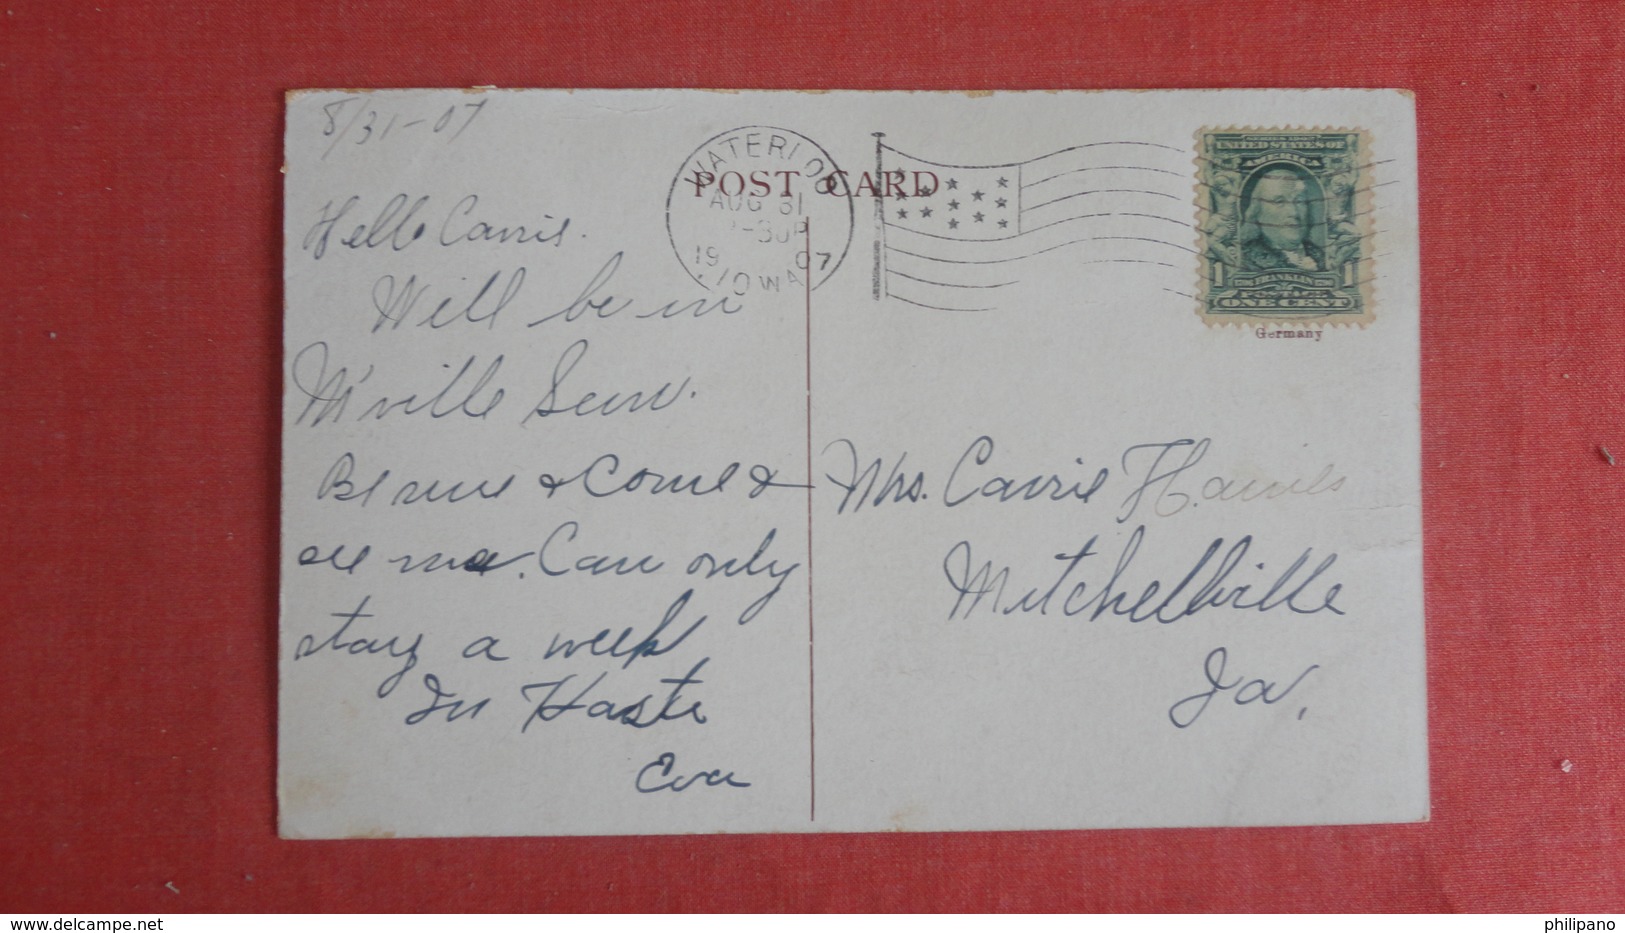 8/31-07
Hello Carrie.
Will be in
M'ville Sun.
Be sure & Come &
see me. Can only
stay a week
In Haste
Eva
POST CARD
WATERLOO
AUG 31
30P
1907
IOWA
SERIES 1902
UNITED STATES OF
AMERICA
FRANKLIN
1 1
ONE CENT
Germany
Mrs. Carrie Haines
Mitchellville
Ia.
philipano